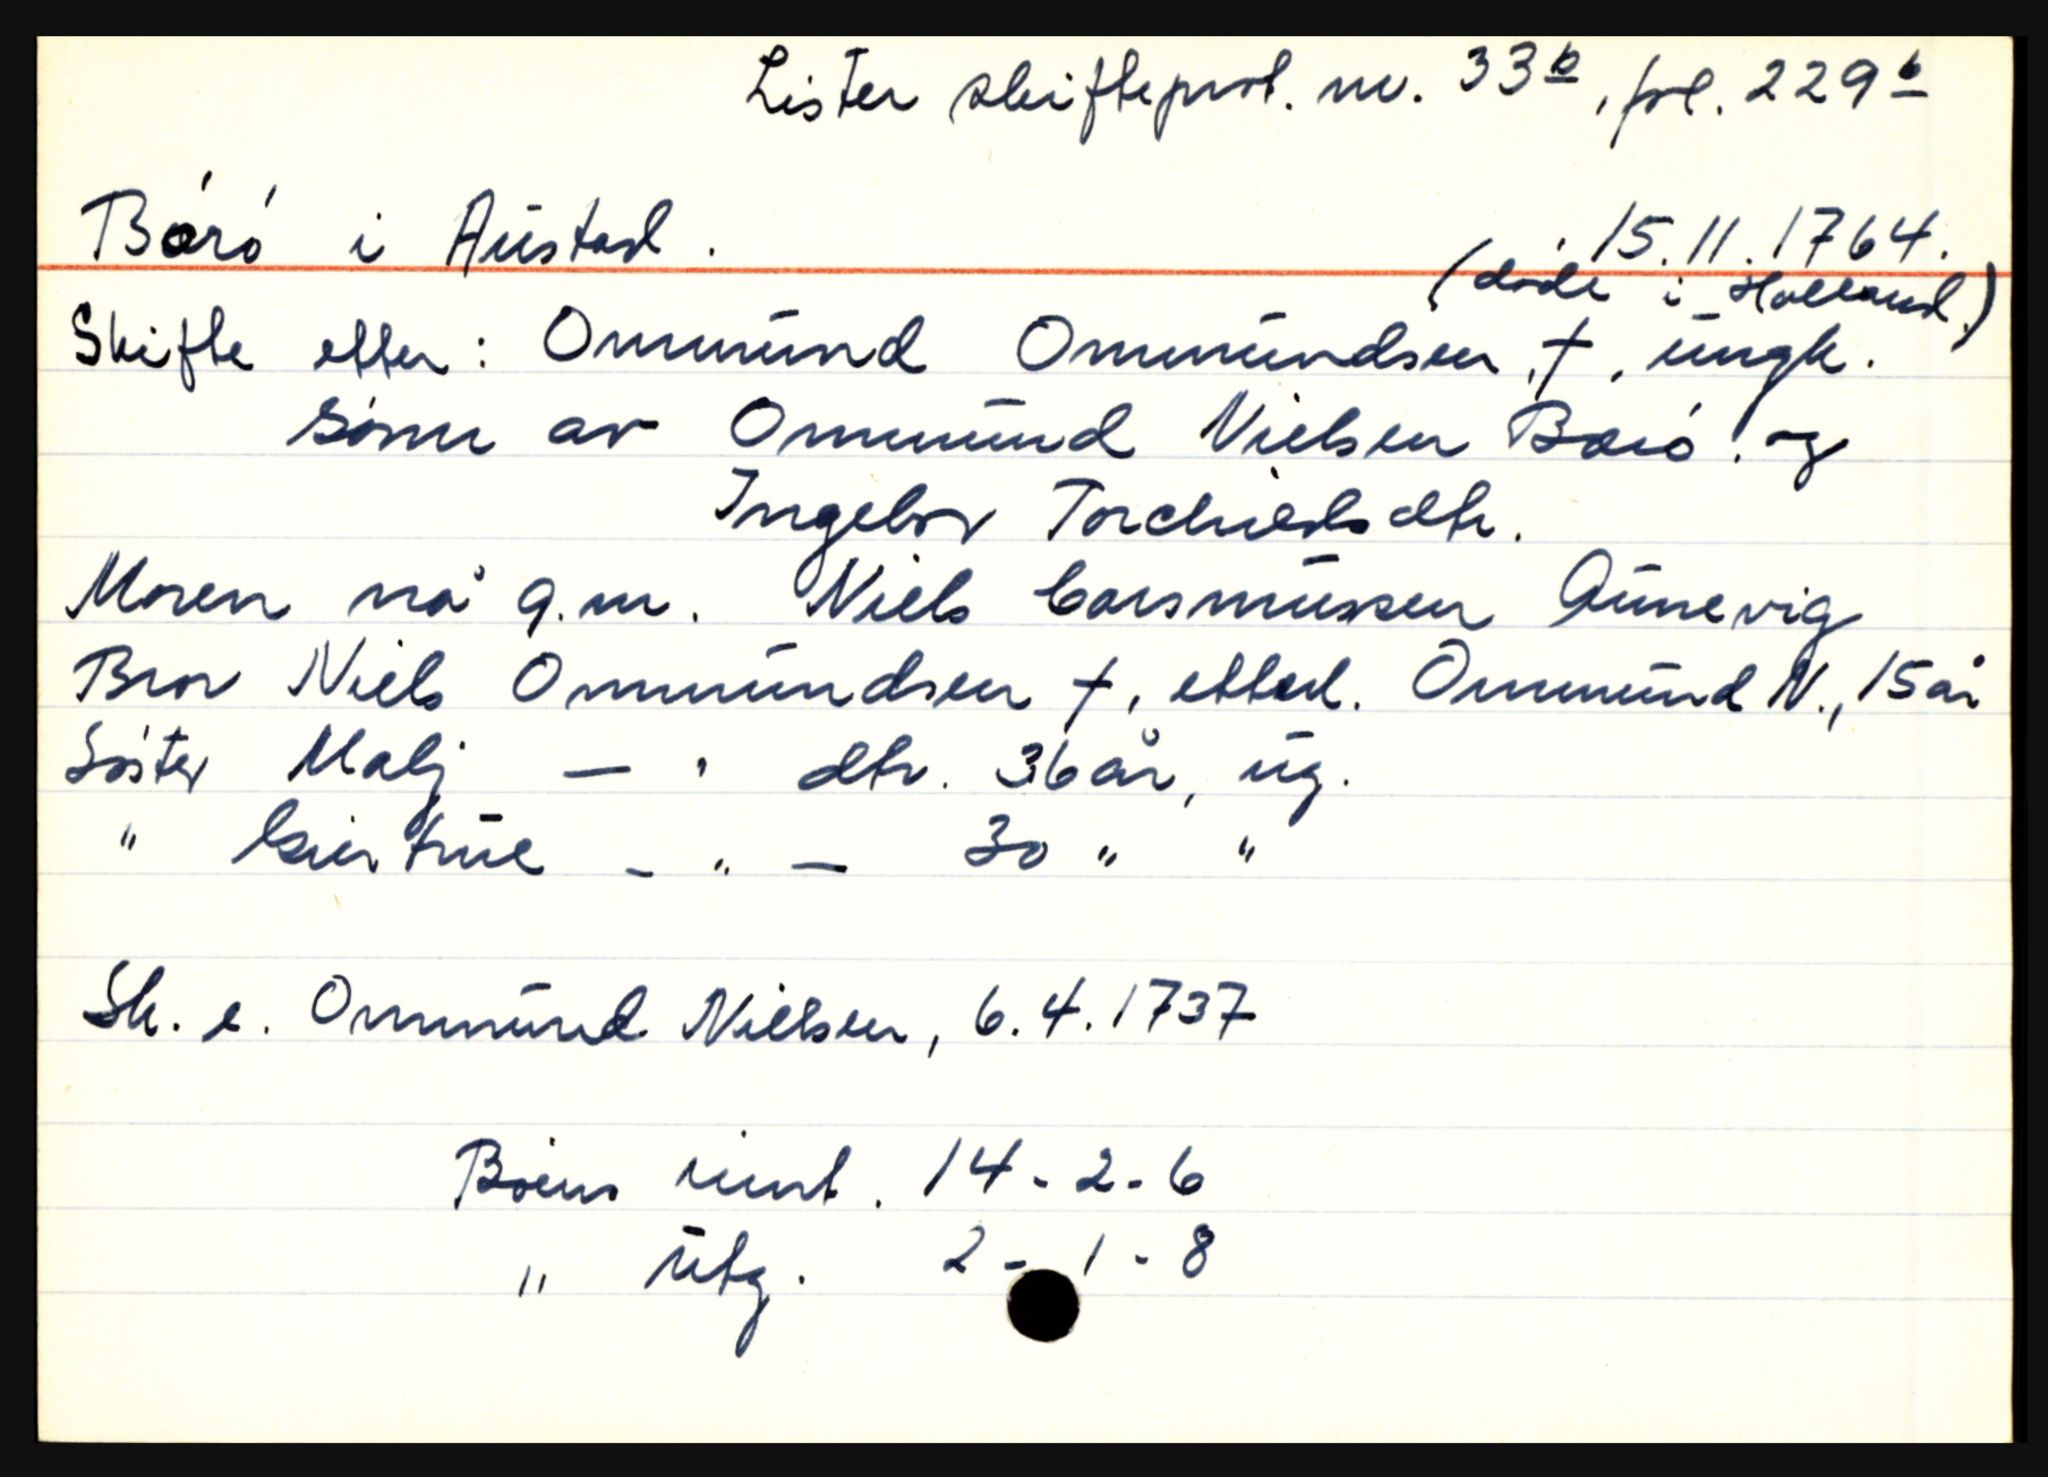 Lister skifteprot. nr. 33b, fol. 229b
Børø i Austad. 15.11.1764.
(døde i Holland.)
Skifte etter: Ommund Ommundsen, †, ungk.
sønn av Ommund Nielsen Børø og
Ingebor Torchildsdtr.
Moren nå g.m. Niels Gunevig
Bror Niels Ommundsen †, etterl. Ommund N., 15 år
Søster Malj — " dtr. 36 år, ug.
" Giertrue - " — 30 " "
Sk. e. Ommund Nielsen, 6.4.1737
Boens innt. 14-2-6
" utg. 2-1-8